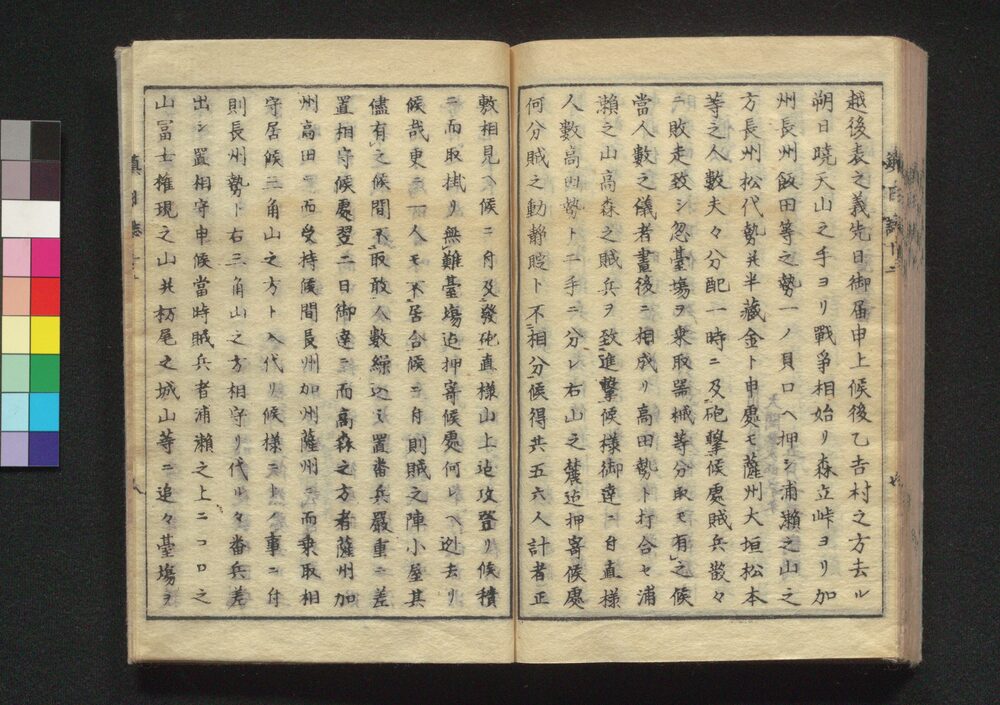 越後表之義先日御届申上候後乙吉村之方去ル
朔日曉天山之手ヨリ戰爭相始リ森立峠ヨリ加
州長州飯田等之勢一ノ貝口ヘ押シ浦瀬之山之
方長州松代勢其半藏金ト申處モ薩州大垣松本
等之人數夫々分配一時ニ及砲擊候處賊兵散々
ニ敗走致シ忽臺場ヲ乘取器械等分取モ有之候
當人數之儀者晝後ニ相成リ高田勢ト打合セ浦
瀬之山高森之賊兵ヲ致進擊候樣御達ニ付直樣
人數高田勢ト二手ニ分レ右山之麓迠押寄候處
何分賊之動靜聢ト不相分候得共五六人計者正
敷相見ヘ候ニ付及發砲直樣山上迠攻登リ候積
ニ而取掛リ無難臺塲迠押寄候處何レヘ迯去リ
候哉更ニ一人モ不居合候ニ付則賊之陣小屋其
儘有之候間不取敢人數繰込ミ置番兵嚴重ニ差
置相守候處翌二日御達ニ而高森之方者薩州加
州高田ニ而受持候間長州加州薩州ニ而乘取相
守居候三角山之方ト入代リ候樣ニトノ事ニ付
則長州勢ト右三角山之方相守リ代ル々番兵差
出シ置相守申候當時賊兵者浦瀬之上ニコロ之
山冨士權現之山其枋尾之城山等ニ追々臺塲ヲ